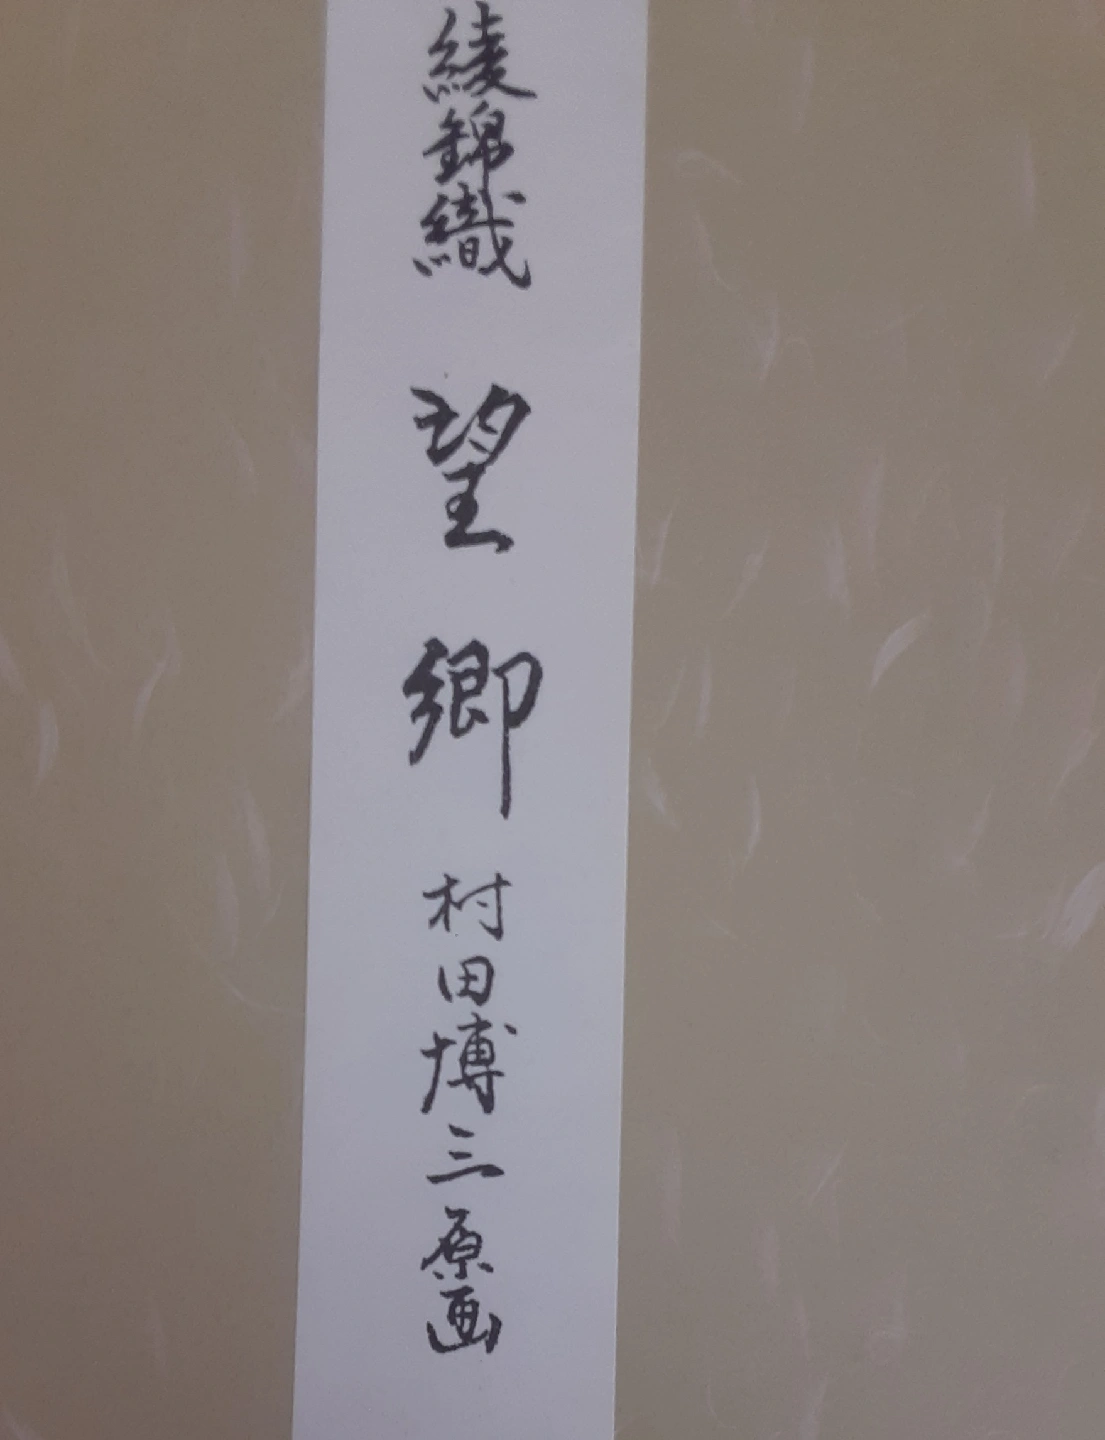 綾錦織 望郷 村田博三原画